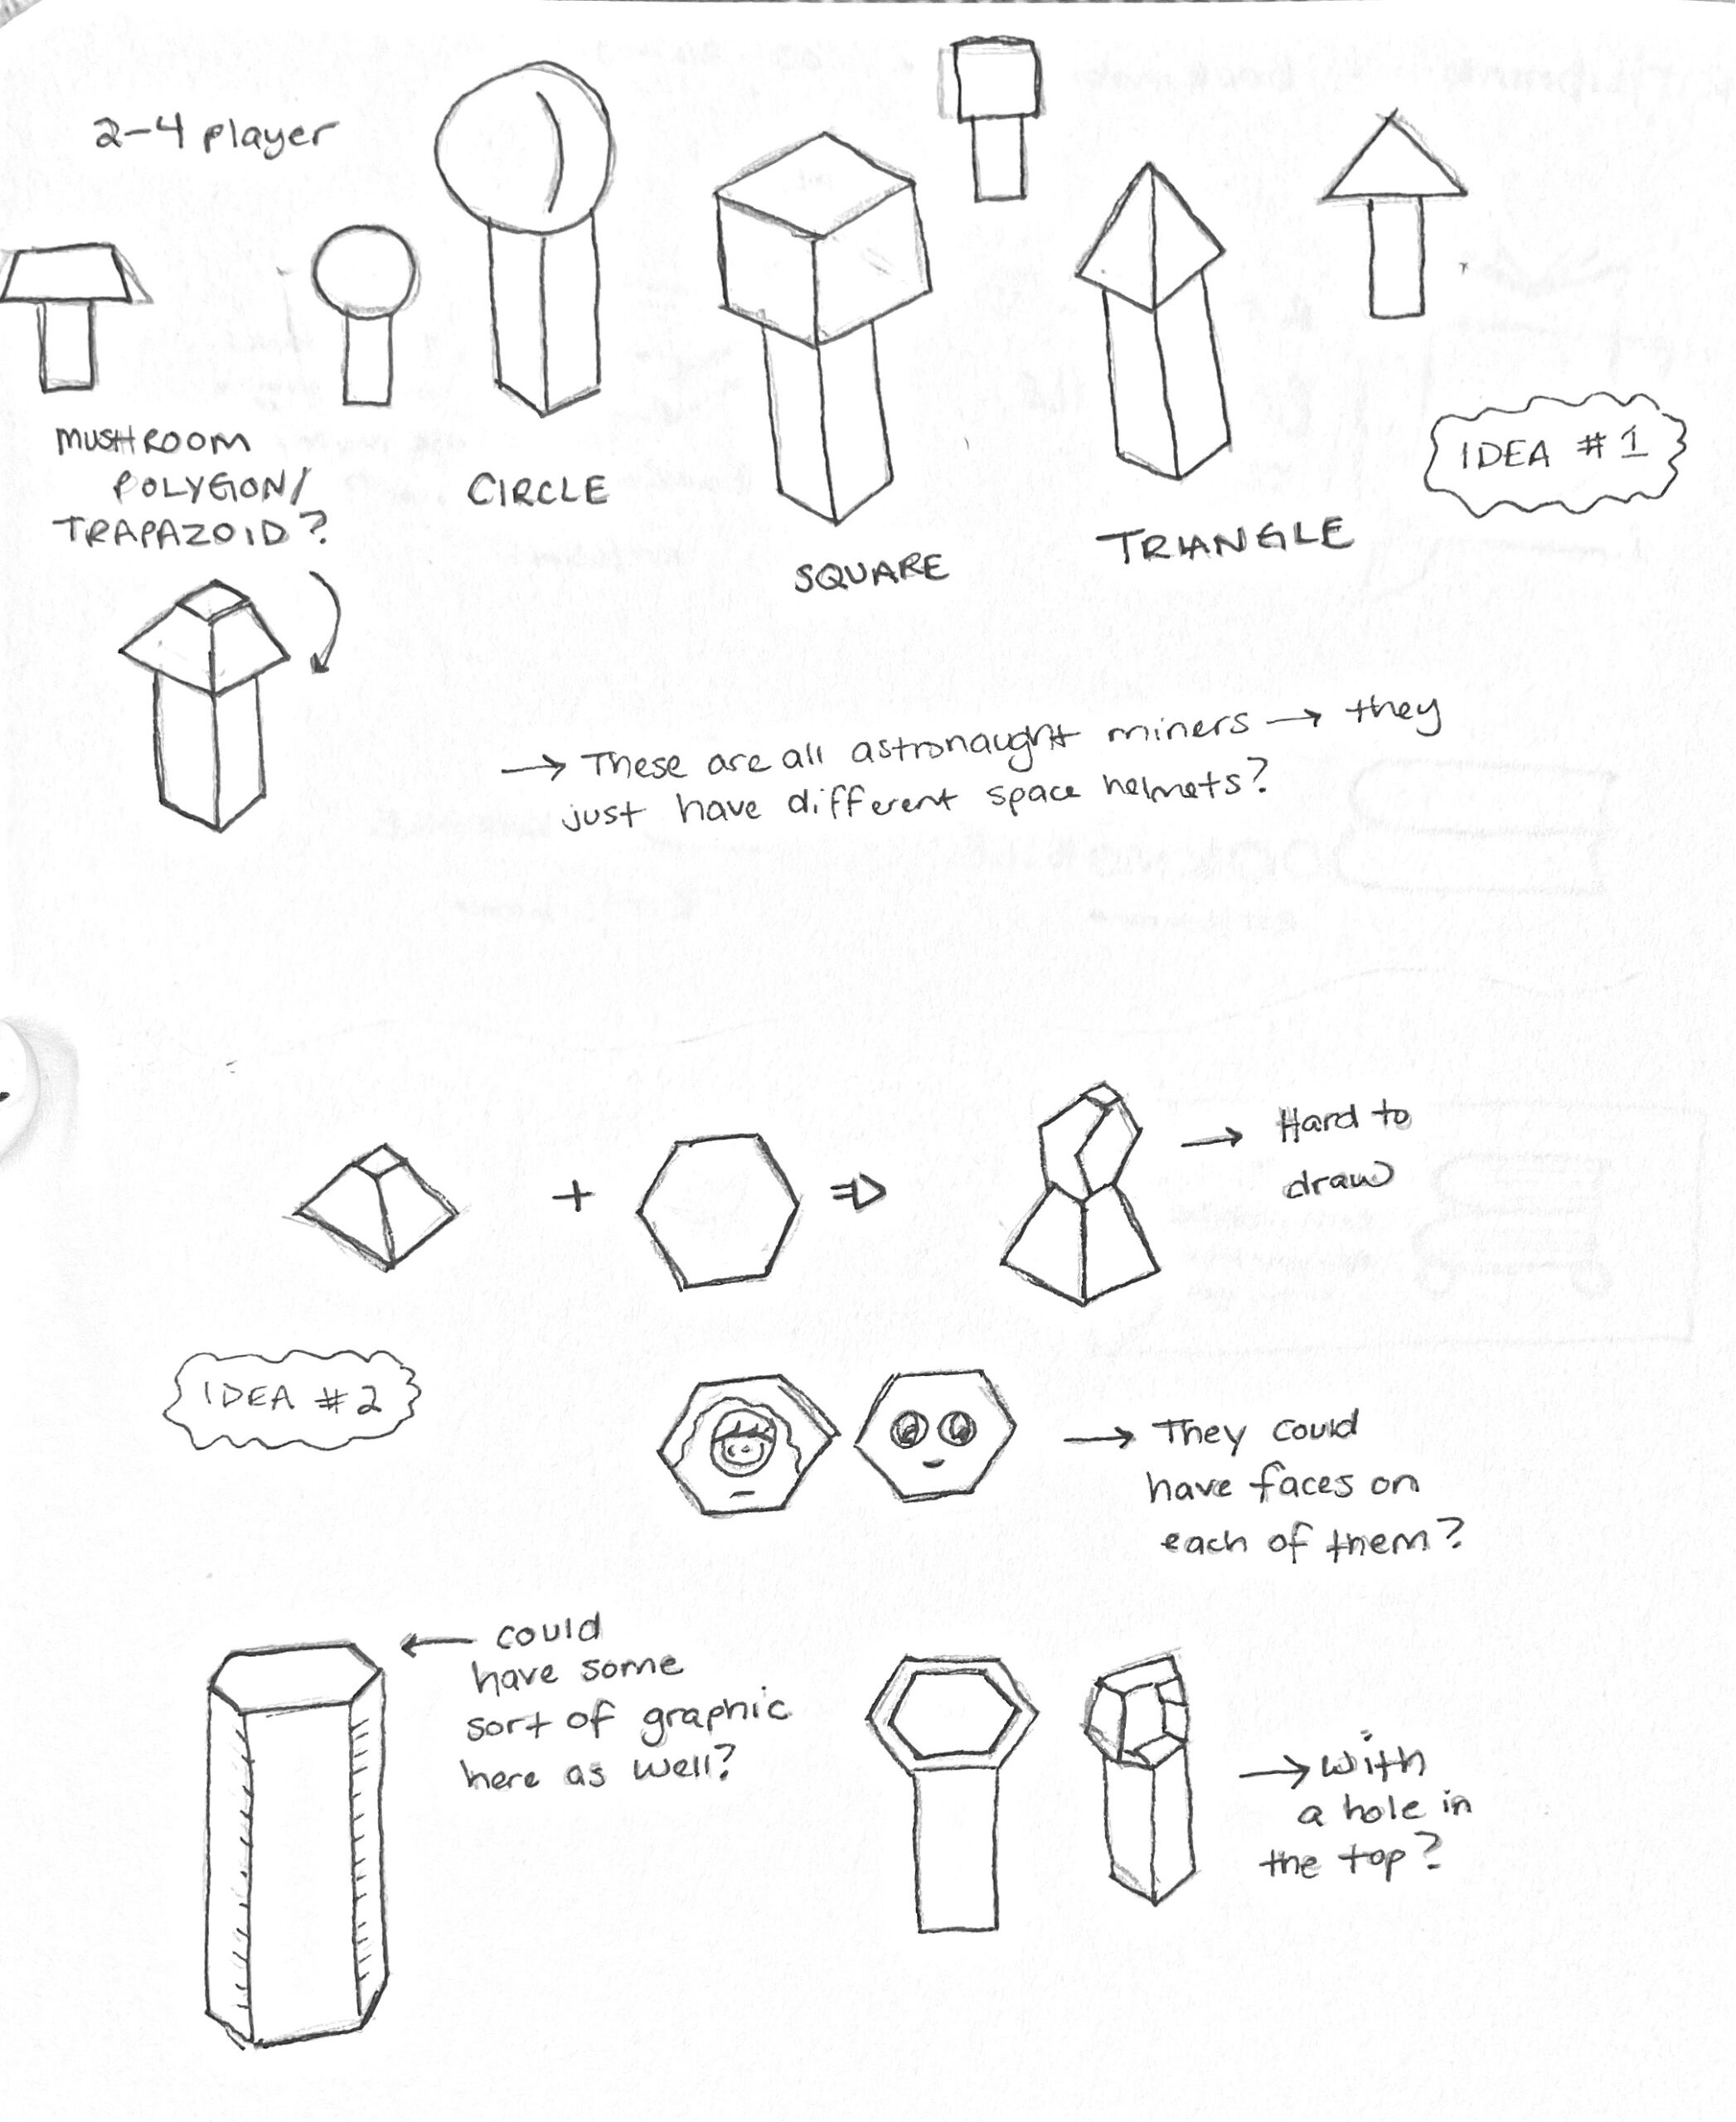 2-4 player
MUSHROOM
POLYGON/
TRAPAZOID?
CIRCLE
SQUARE
TRIANGLE
IDEA #1
→ These are all astronaught miners → they
just have different space helmets?
+
⇒
→ Hard to
draw
IDEA #2
→ They could
have faces on
each of them?
← could
have some
sort of graphic
here as well?
→ with
a hole in
the top?